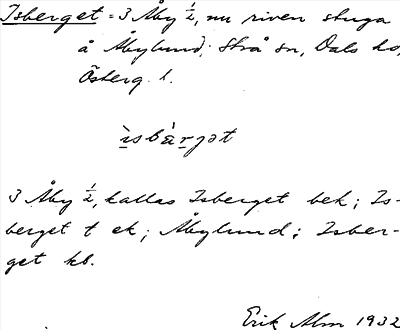 Isberget = 3 Åby ½, nu riven stuga
å Åbylund, Strå sn, Dals hd,
Österg. l.
ìsbàrjət
3 Åby ½, kallas Isberget bek; Is-
berget t ek; Åbylund; Isber-
get kb.
Erik Alm 1932